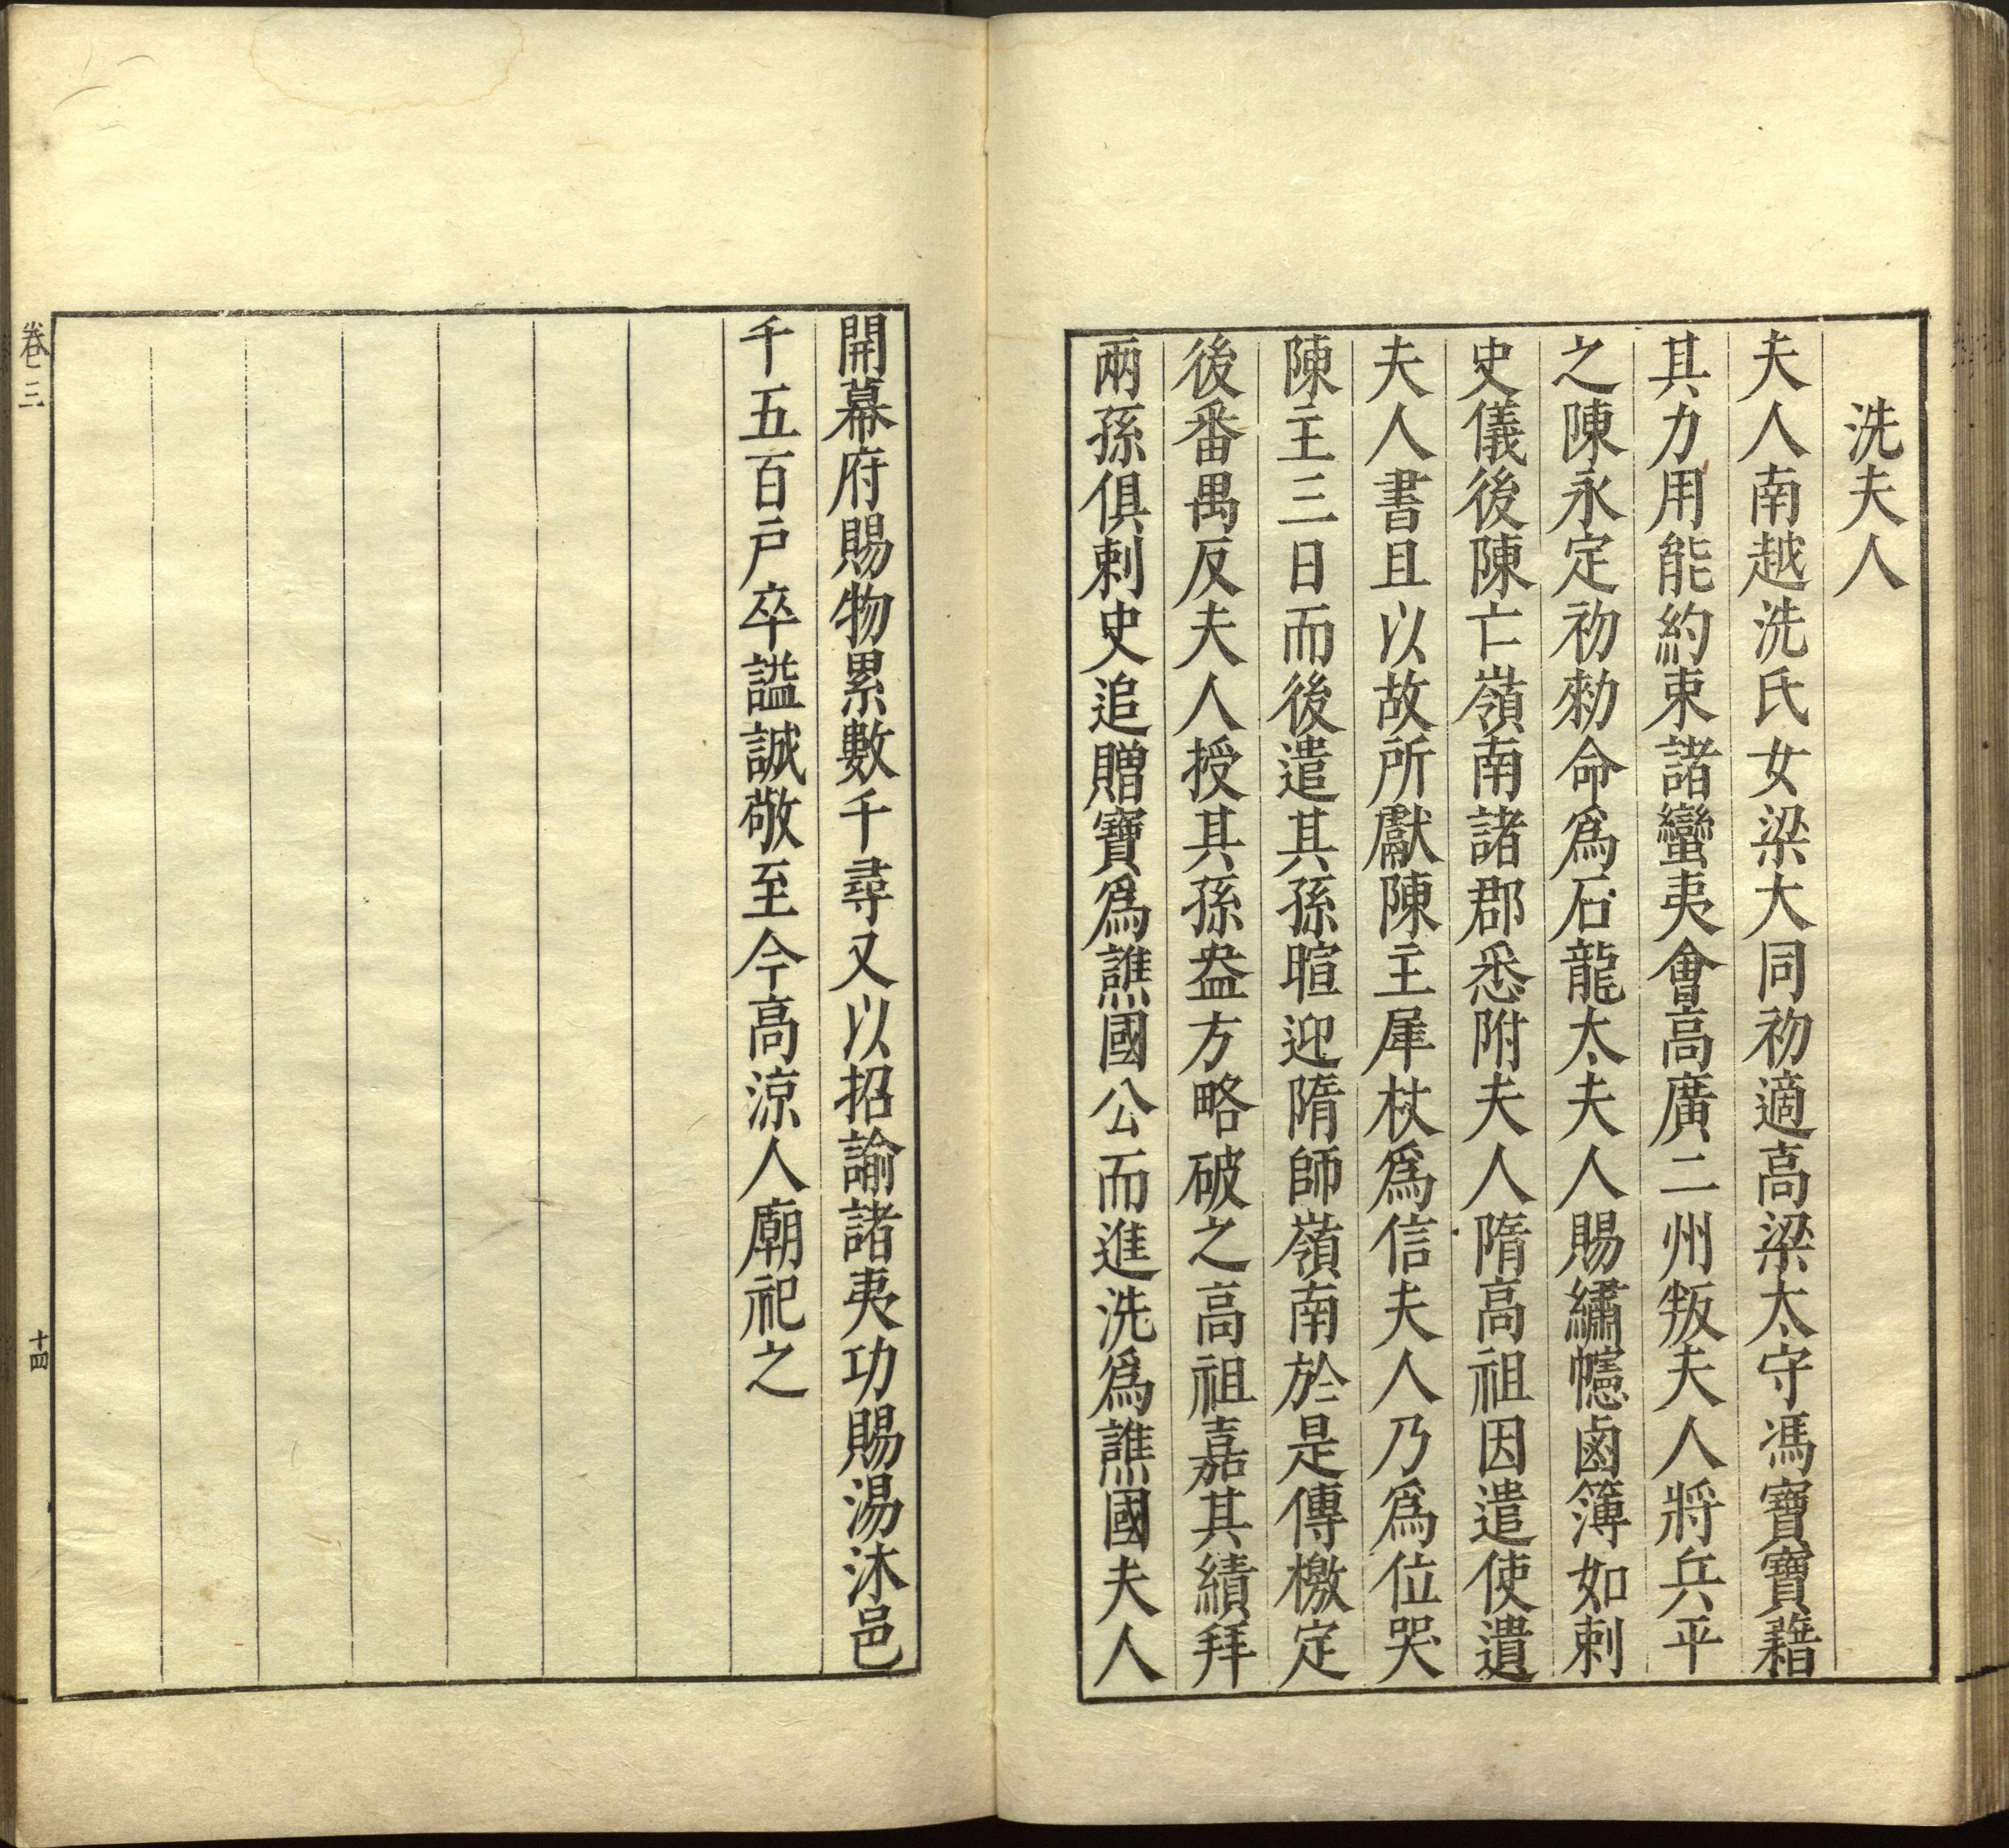 洗夫人
夫人南越洗氏女梁大同初適高梁太守馮寶寶藉
其力用能約束諸蠻夷會高廣二州叛夫人將兵平
之陳永定初勑命爲石龍太夫人賜繡幰鹵簿如刺
史儀後陳亡嶺南諸郡悉附夫人隋高祖因遣使遺
夫人書且以故所獻陳主犀杖爲信夫人乃爲位哭
陳主三日而後遣其孫暄迎隋師嶺南於是傳檄定
後番禺反夫人授其孫盎方略破之高祖嘉其績拜
兩孫俱刺史追贈寶爲譙國公而進洗爲譙國夫人
開幕府賜物累數千尋又以招諭諸夷功賜湯沐邑
千五百戶卒謚誠敬至今高涼人廟祀之
卷三
十四